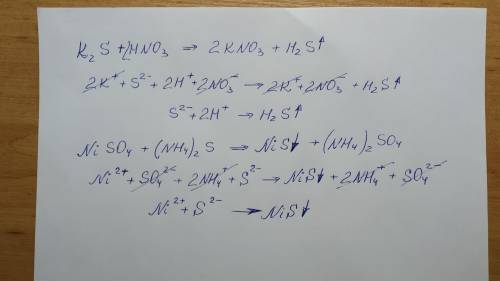 K₂S + 2HNO₃ ⇒ 2KNO₃ + H₂S↑
2K⁺ + S²⁻ + 2H⁺ + 2NO₃⁻ → 2K⁺ + 2NO₃⁻ + H₂S↑
S²⁻ + 2H⁺ → H₂S↑
NiSO₄ + (NH₄)₂S ⇒ NiS↓ + (NH₄)₂SO₄
Ni²⁺ + SO₄²⁻ + 2NH₄⁺ + S²⁻ → NiS↓ + 2NH₄⁺ + SO₄²⁻
Ni²⁺ + S²⁻ → NiS↓